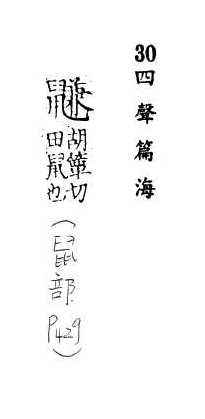 30四聲篇海
鼸胡簟切
田鼠也
(鼠部 P429)